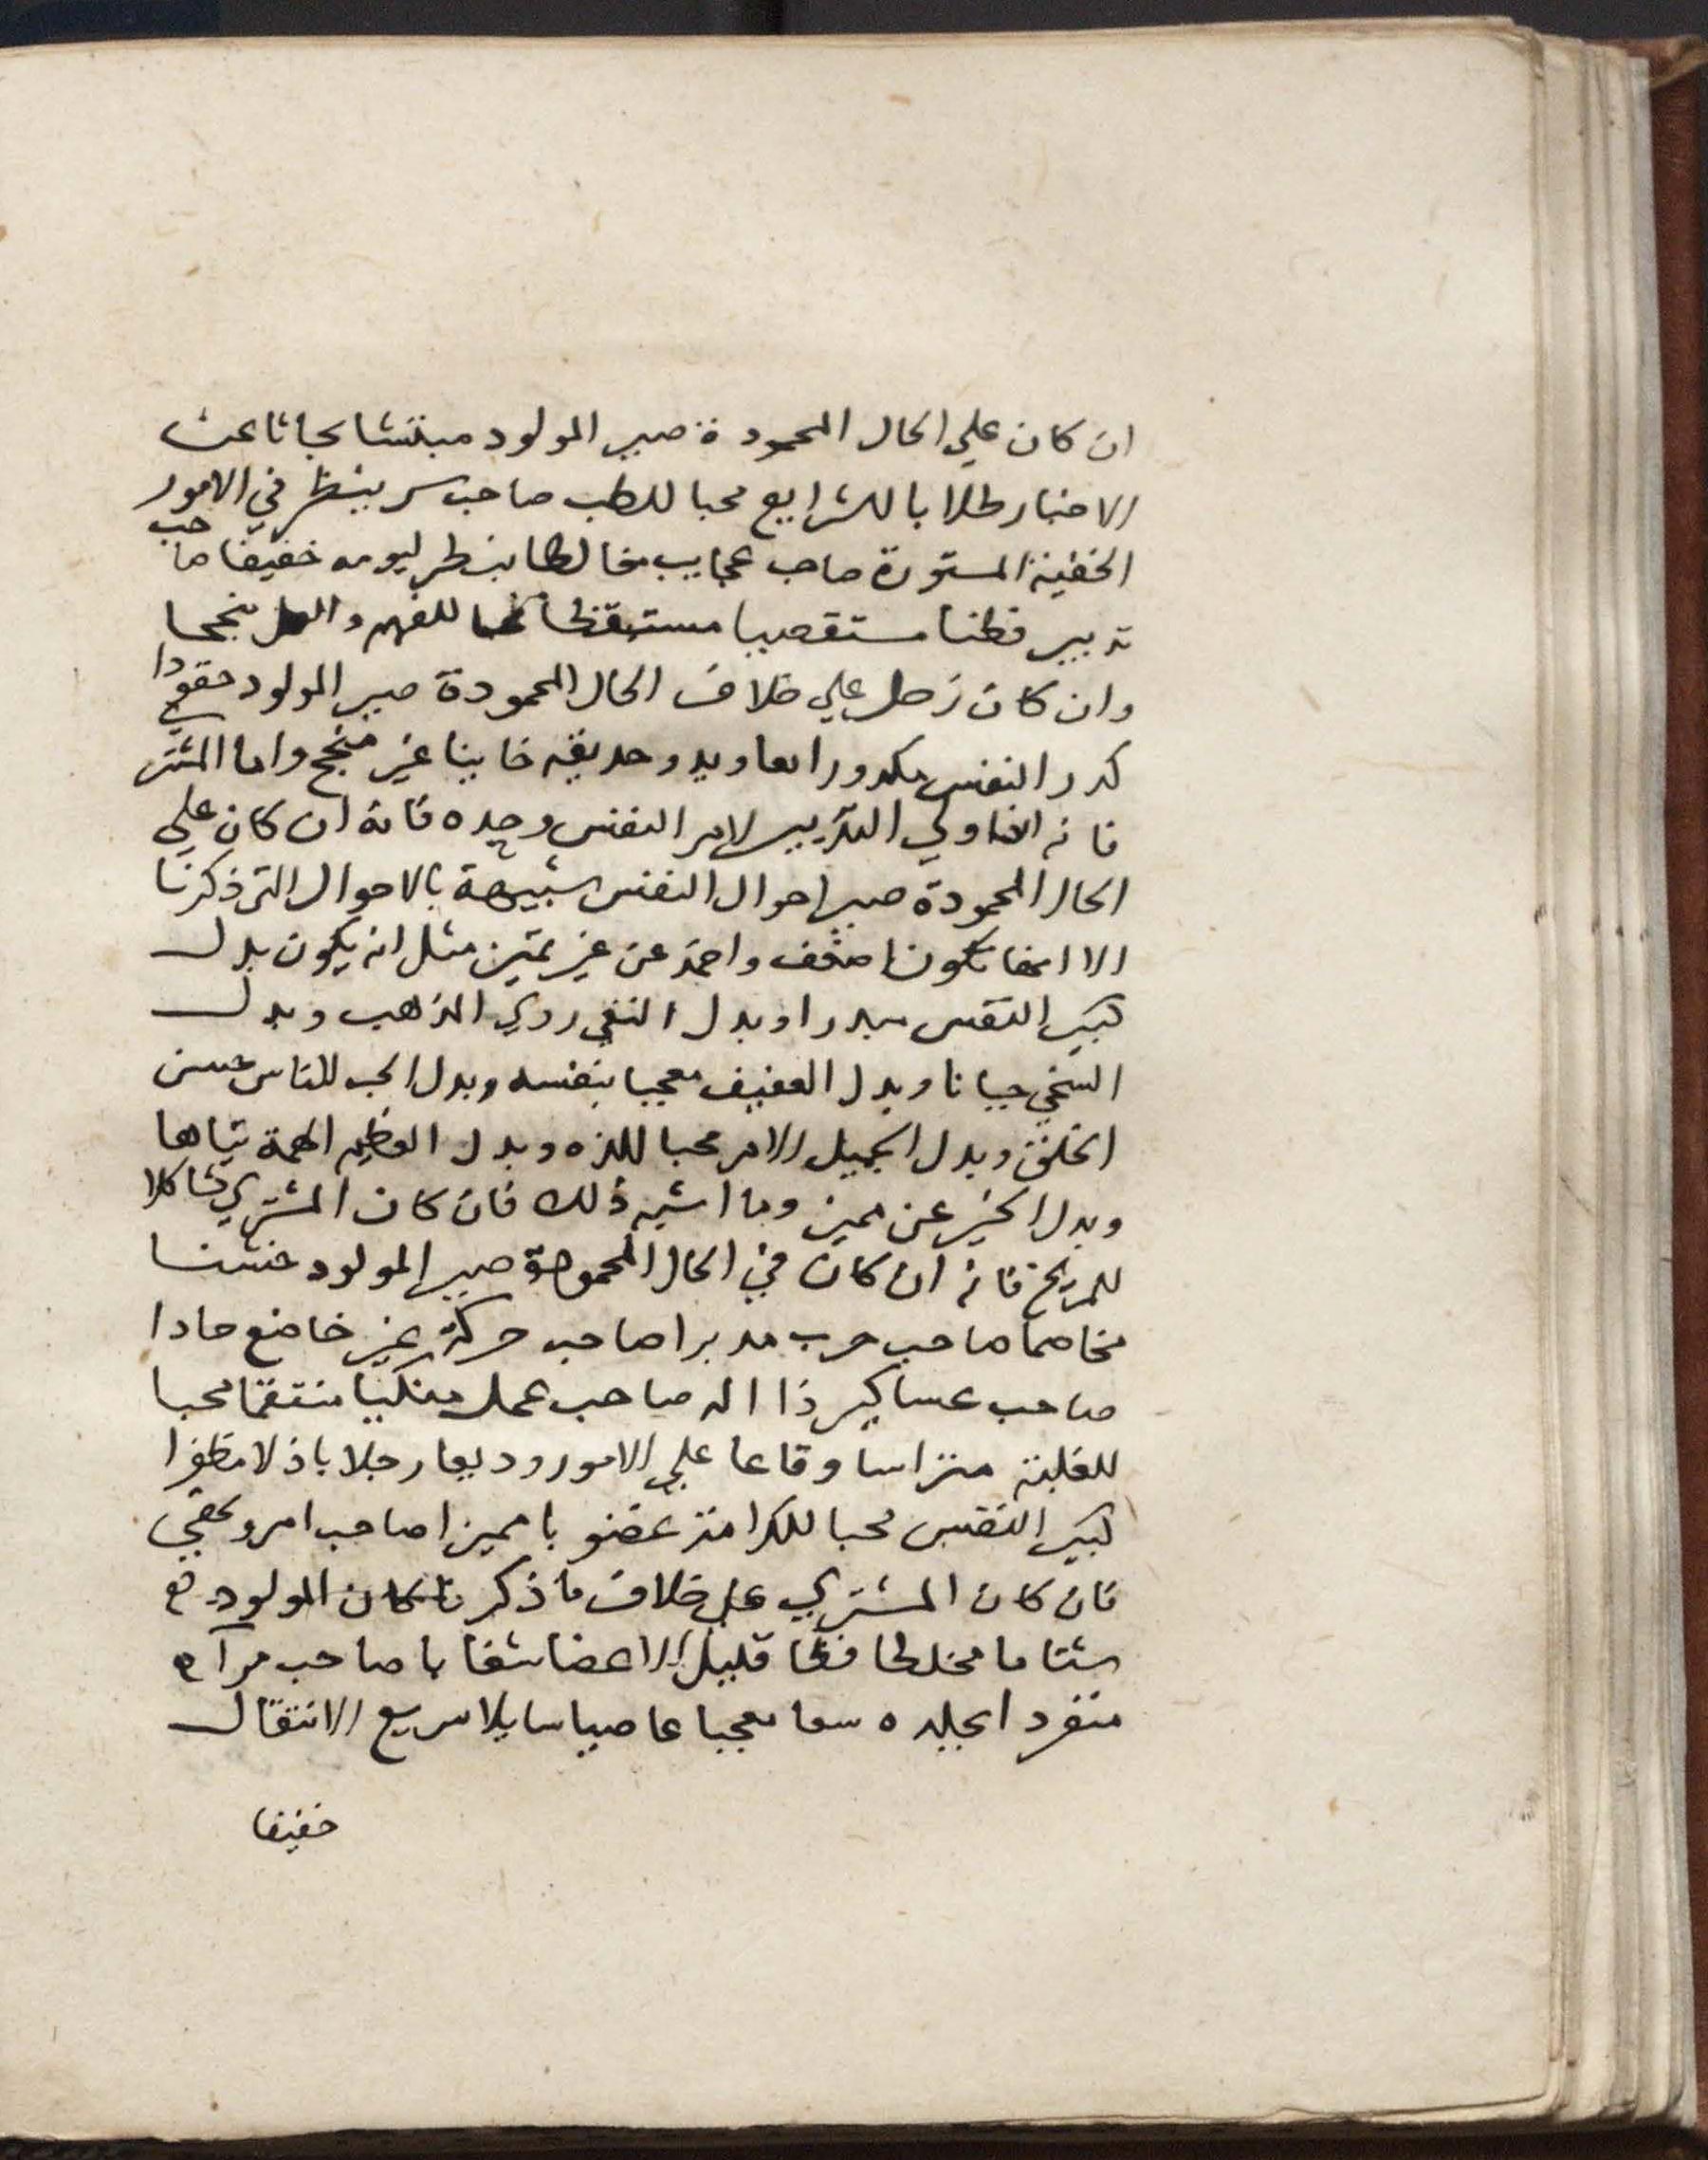 ان كان علي الحال المحمودة صير المولود مبتشا بحاثا عن
الاخبار طلابا للشرايع محبا للطب صاحب سر ينظر في الامور
الخفية المستورة صاحب عجايب مخالطا ينظر ليومه خفيفا صاحب
تدبير فطنا مستقصيا مستيقظا للفهم منجحا
وان كان زحل علي خلاف الحال المحمودة صير المولود حقودا
كدر النفس مكدورا خايبا غير منجح واما المشتري
فانه اولي التدبير لامر النفس وحده فانه ان كان علي
الحال المحمودة صير احوال النفس شبيهة بالاحوال التي ذكرنا
الا انها تكون اضعف واحمد عن غير تميز مثل انه يكون بدل
كبير النفس مبدرا وبدل النقي ردي المذهب وبدل
السخي جبانا وبدل العفيف معجبا بنفسه وبدل الحب للناس حسن
الخلق وبدل الجميل الامر محبا للذه وبدل العظيم الهمة تياها
وبدل الخير عن مميز وما اشبه ذلك فان كان المشتري مشاكلا
للمريخ فانه ان كان في الحال المحمودة صير المولود خشنا
مخاصما صاحب حرب مدبرا صاحب حركة غير خاضع حادا
صاحب عساكر ذا اله صاحب عمل منتقما محبا
للغلبة متراسا وقاعا علي الامور وديعا رجلا باذلا مظفرا
كبير النفس محبا للكرامة غضوبا مميزا صاحب امر ونهي
فان كان المشتري علي خلاف ما ذكرنا كان المولود
شتاما مخلطا قليل الاعضا شغابا صاحب مرآه
منفردا معجبا عاصيا سايلا سريع الانتقال
خفيفا